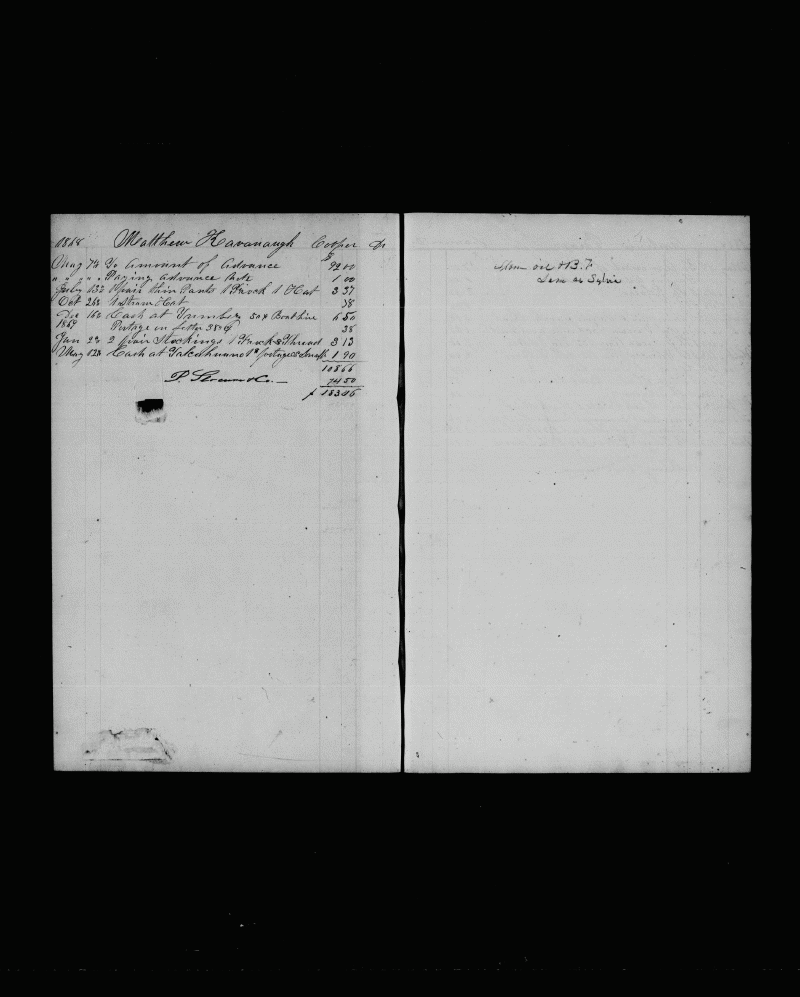 1868 Matthew Kavanaugh Cooper Dr
May 7th To Amount of Advance $ 92 00
" " " " Paying Advance Note 1 00
July 13th 1 pair thin Pants 1 Frock 1 Hat 3 37
Oct 26th 1 Straw Hat 38
Dec 16th Cash at Tumbez 50 & Boathire 6 50
1869 Postage on Letter 38 38
Jan 2d 2 pair Stockings 1 Frock & Thread 3 13
May 12th Cash at Talcahuano postage & 1 90
108 66
P. & Co. 74 50
$ 183 16
oil & B.
Sylvie